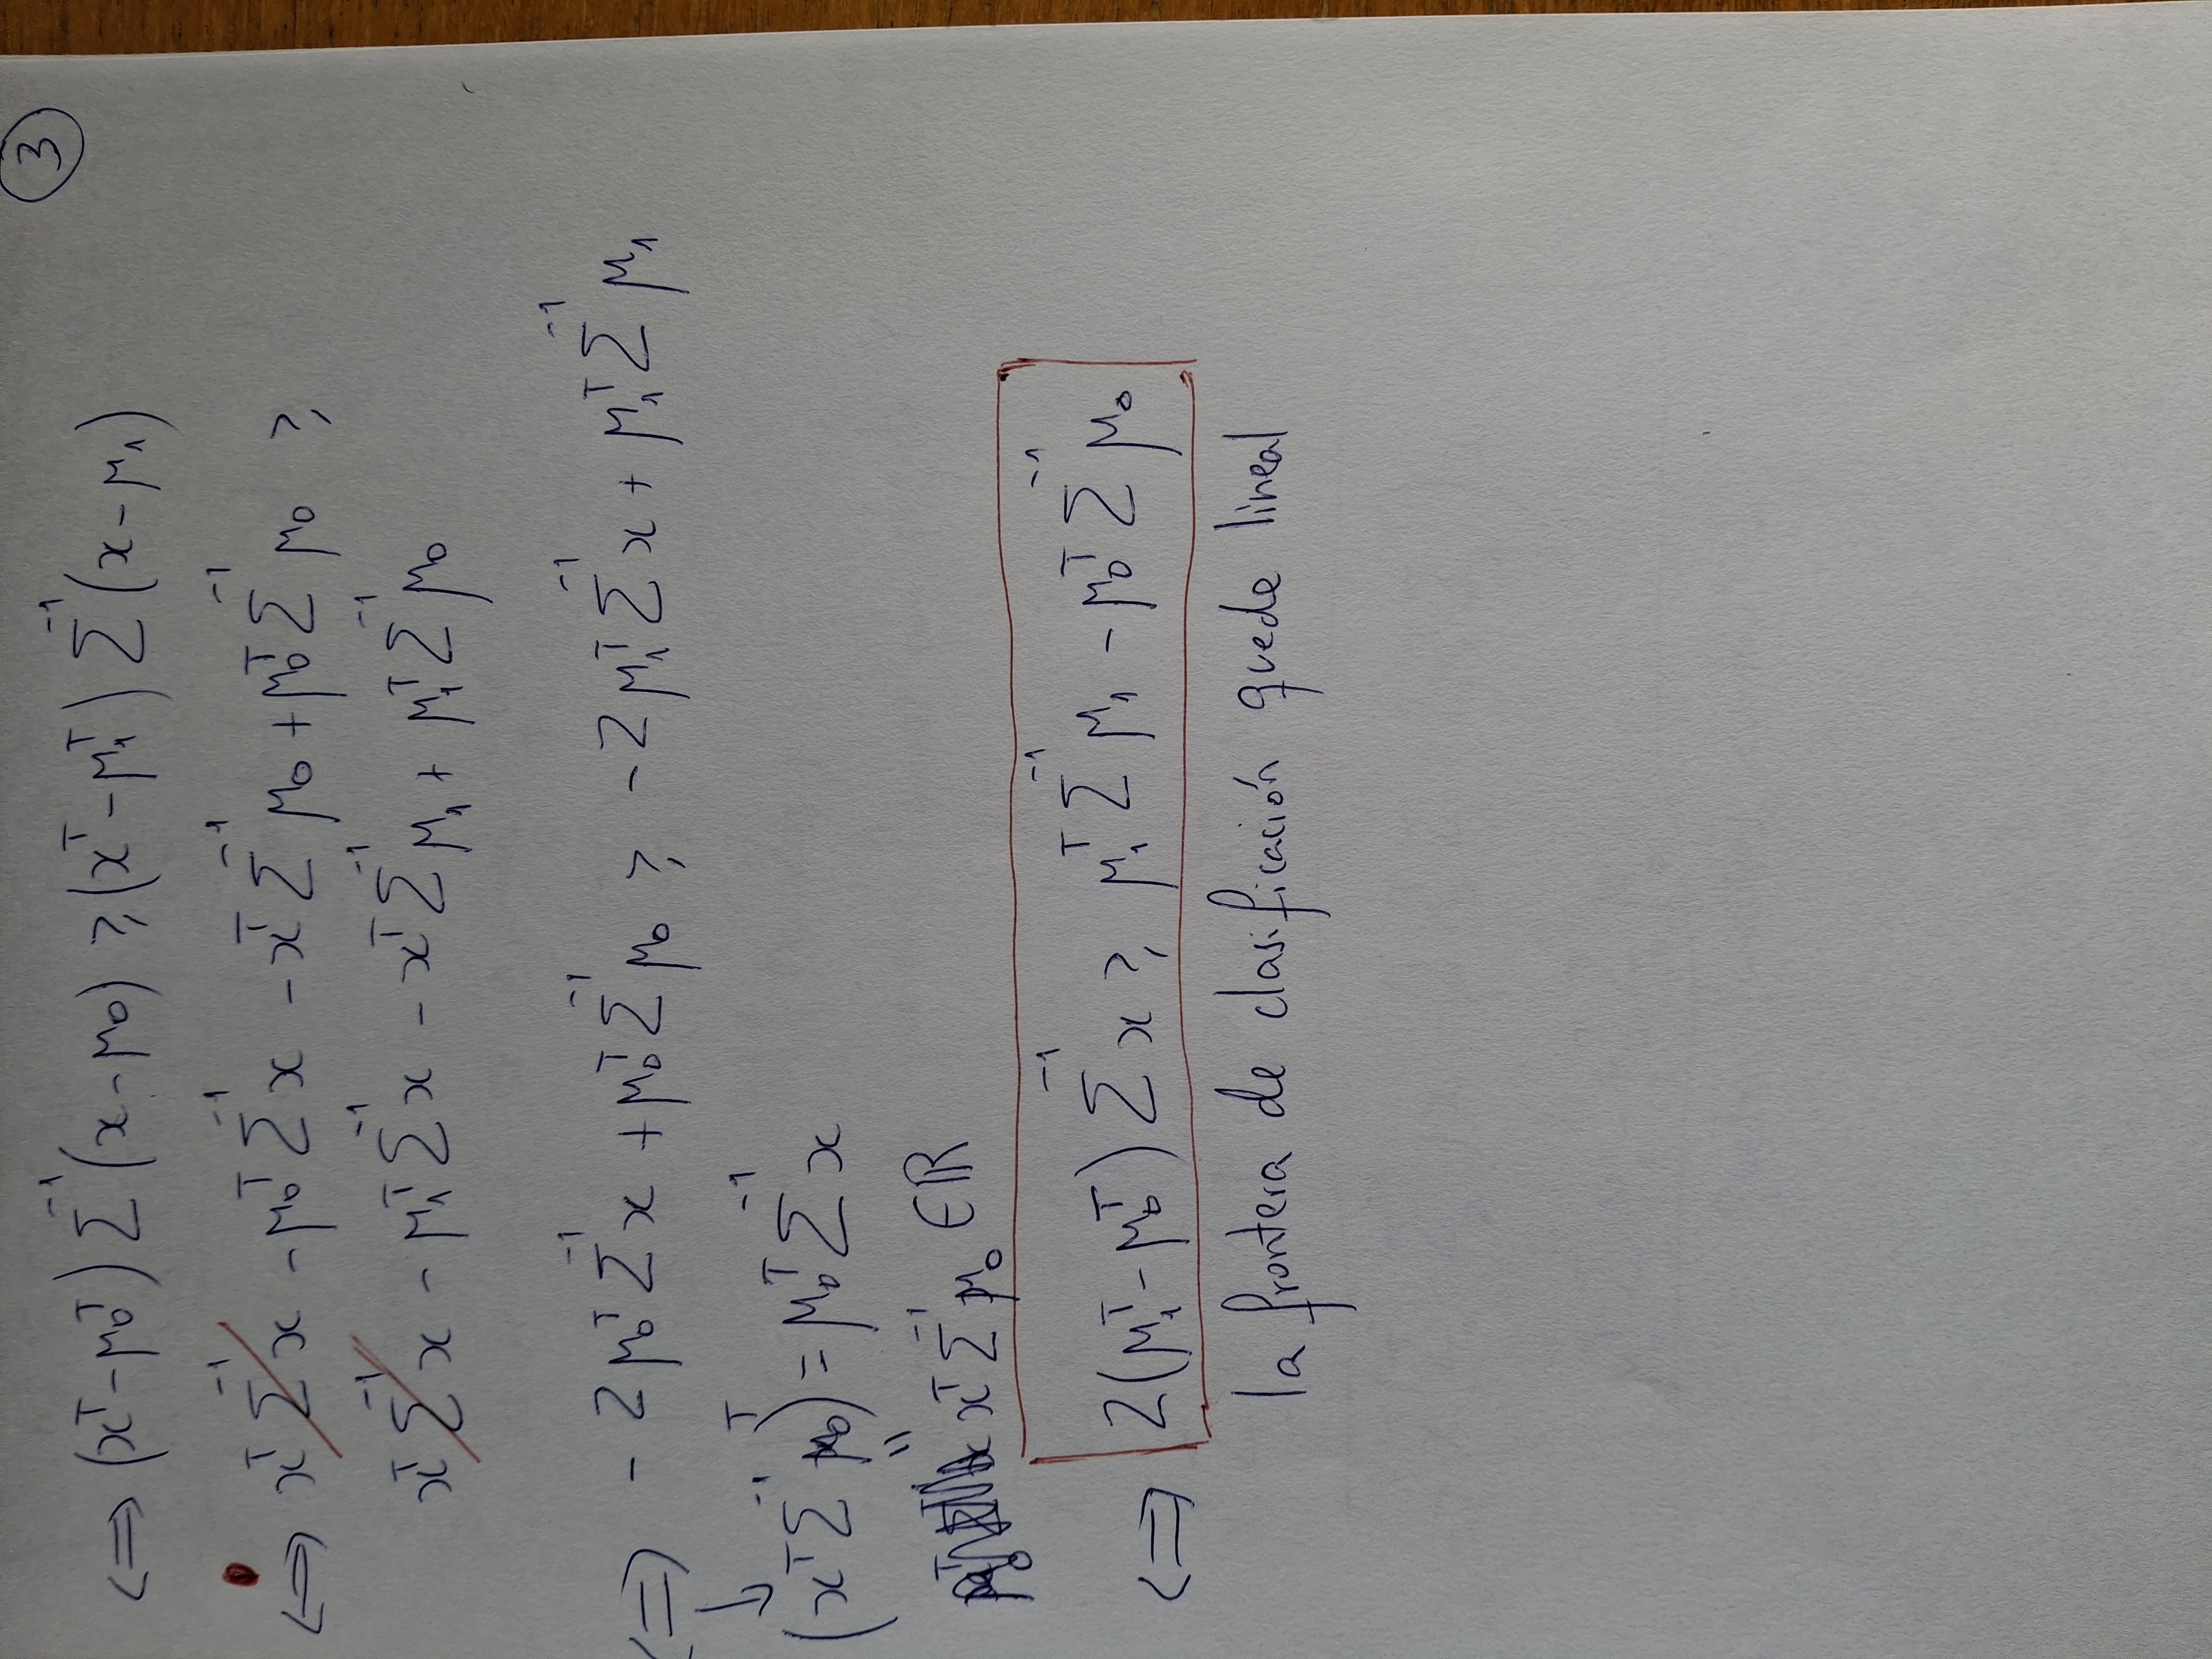 ③
⟺ (xᵀ - μ₀ᵀ) Σ⁻¹ (x - μ₀) ⩾ (xᵀ - μ₁ᵀ) Σ⁻¹ (x - μ₁)
⟺ xᵀ Σ⁻¹ x - μ₀ᵀ Σ⁻¹ x - xᵀ Σ⁻¹ μ₀ + μ₀ᵀ Σ⁻¹ μ₀ ⩾
xᵀ Σ⁻¹ x - μ₁ᵀ Σ⁻¹ x - xᵀ Σ⁻¹ μ₁ + μ₁ᵀ Σ⁻¹ μ₀
⟺ - 2 μ₀ᵀ Σ⁻¹ x + μ₀ᵀ Σ⁻¹ μ₀ ⩾ - 2 μ₁ᵀ Σ⁻¹ x + μ₁ᵀ Σ⁻¹ μ₁
↳ (xᵀ Σ⁻¹ μ₀)ᵀ = μ₀ᵀ Σ⁻¹ x
=
xᵀ Σ⁻¹ μ₀ ∈ ℝ
⟺ 2 (μ₁ᵀ - μ₀ᵀ) Σ⁻¹ x ⩾ μ₁ᵀ Σ⁻¹ μ₁ - μ₀ᵀ Σ⁻¹ μ₀
la frontera de clasificación quede lineal